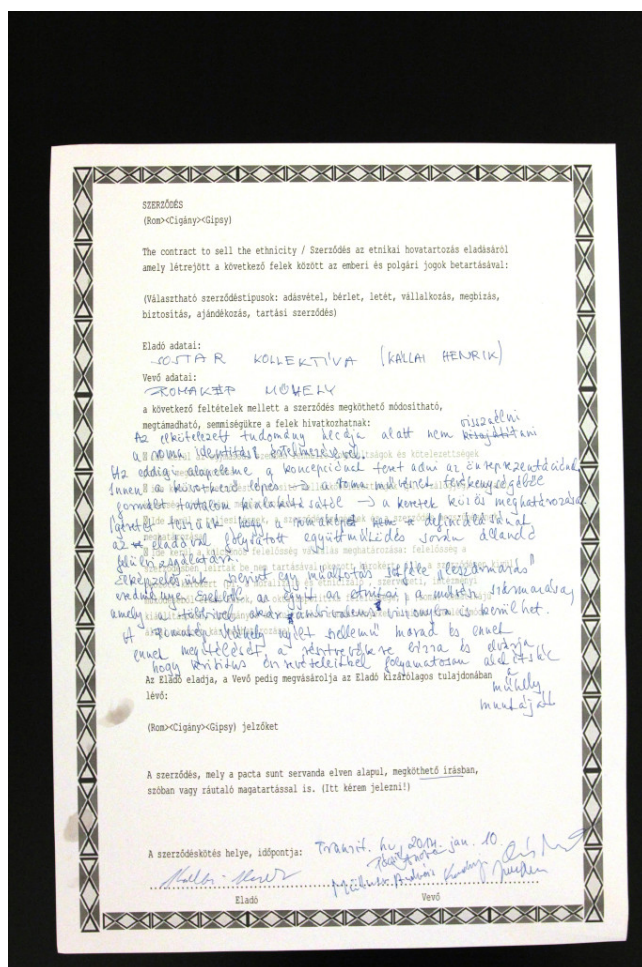 SZERZŐDÉS
(Rom><Cigány><Gipsy)
The contract to sell the ethnicity / Szerződés az etnikai hovatartozás eladásáról
amely létrejött a következő felek között az emberi és polgári jogok betartásával:
(Választható szerződéstipusok: adásvétel, bérlet, letét, vállalkozás, megbízás,
biztosítás, ajándékozás, tartási szerződés)
Eladó adatai:
SOSTAR KOLLEKTÍVA (KÁLLAI HENRIK)
Vevő adatai:
ROMAKÉP MŰHELY
a következő feltételek mellett a szerződés megköthető módosítható,
megtámadható, semmiségükre a felek hivatkozhatnak:
Az elkötelezett tudomány álcája alatt nem visszaélni
a roma identitás értelmezésével.
Az eddigi alapeleme a koncepciónak teret adni az önreprezentációnak
Innen a következő lépés → a roma művészet tevékenységéből
formált tartalom kialakításától → a keretek közös meghatározása
Ígéretet teszünk, hogy a romaképet nem a definiálásának,
az eladóval folytatott együttműködés során állandó
felülvizsgálatára.
Elképzelésünk szerint egy műalkotás többféle "leszármazás"
eredménye. Ezekből az egyik az etnikai a művész származása,
amely a többivel akár ambivalens viszonyba is kerülhet.
A Romakép Műhely nyílt szellemű marad és ennek
ennek megítélését a résztvevőkre bízza és elvárja
hogy kritikus észrevételeikkel folyamatosan alakítsák
a
műhely
munkáját
Az Eladó eladja, a Vevő pedig megvásárolja az Eladó kizárólagos tulajdonában
lévő:
(Rom><Cigány><Gipsy) jelzőket
A szerződés, mely a pacta sunt servanda elven alapul, megköthető írásban,
szóban vagy ráutaló magatartással is. (Itt kérem jelezni!)
A szerződéskötés helye, időpontja: Tranzit.hu, 2014. jan. 10.
Eladó Vevő